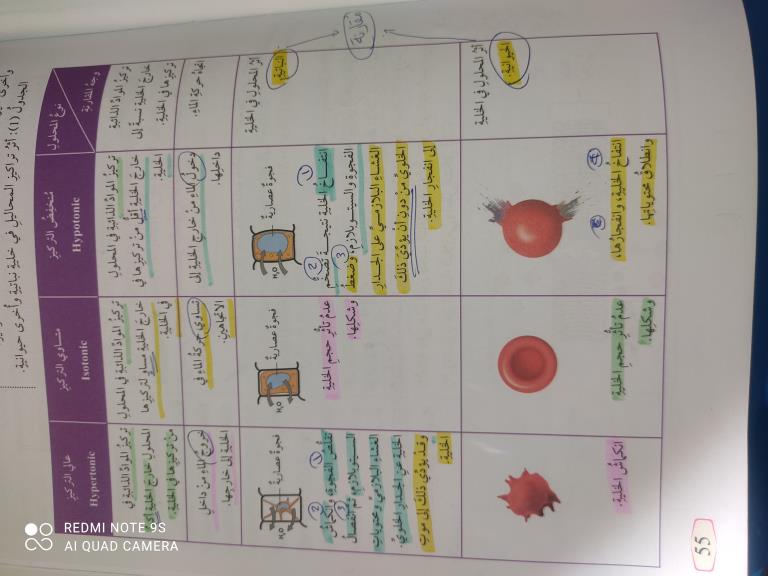 وأخرى
الجدول (1): أثر تراكيز المحاليل في خلية نباتية وأخرى حيوانية.
نوع المحلول
وجه المقارنة
منخفض التركيز
Hypotonic
متساوي التركيز
Isotonic
عالي التركيز
Hypertonic
تركيز المواد الذائبة
خارج الخلية نسبة إلى
تركيزها في الخلية.
تركيز المواد الذائبة في المحلول
خارج الخلية أقل من تركيزها في
الخلية.
تركيز المواد الذائبة في المحلول
خارج الخلية مساوٍ لتركيزها
في الخلية.
تركيز المواد الذائبة في
المحلول خارج الخلية أكبر
من تركيزها في الخلية.
اتجاه حركة الماء.
دخول الماء من خارج الخلية إلى
داخلها.
تساوي حركة الماء في
الاتجاهين.
خروج الماء من داخل
الخلية إلى خارجها.
أثر المحلول في الخلية
النباتية.
فجوة عصارية
H₂O
① انتفاخ الخلية نتيجة تضخم ②
الفجوة والسيتوبلازم، وضغط ③
الغشاء البلازمي على الجدار
الخلوي من دون أن يؤدي ذلك
إلى انفجار الخلية.
فجوة عصارية
H₂O
عدم تأثر حجم الخلية
وشكلها.
فجوة عصارية
H₂O
① تقلص الفجوة، وانكماش ②
السيتوبلازم، ثم انفصال ③
الغشاء البلازمي ومحتويات
الخلية عن الجدار الخلوي.
وقد يؤدي ذلك إلى موت
الخلية.
مقارنة
أثر المحلول في الخلية
الحيوانية.
انتفاخ الخلية، وانفجارها،
وانطلاق محتوياتها.
عدم تأثر حجم الخلية
وشكلها.
انكماش الخلية.
55
REDMI NOTE 9S
AI QUAD CAMERA